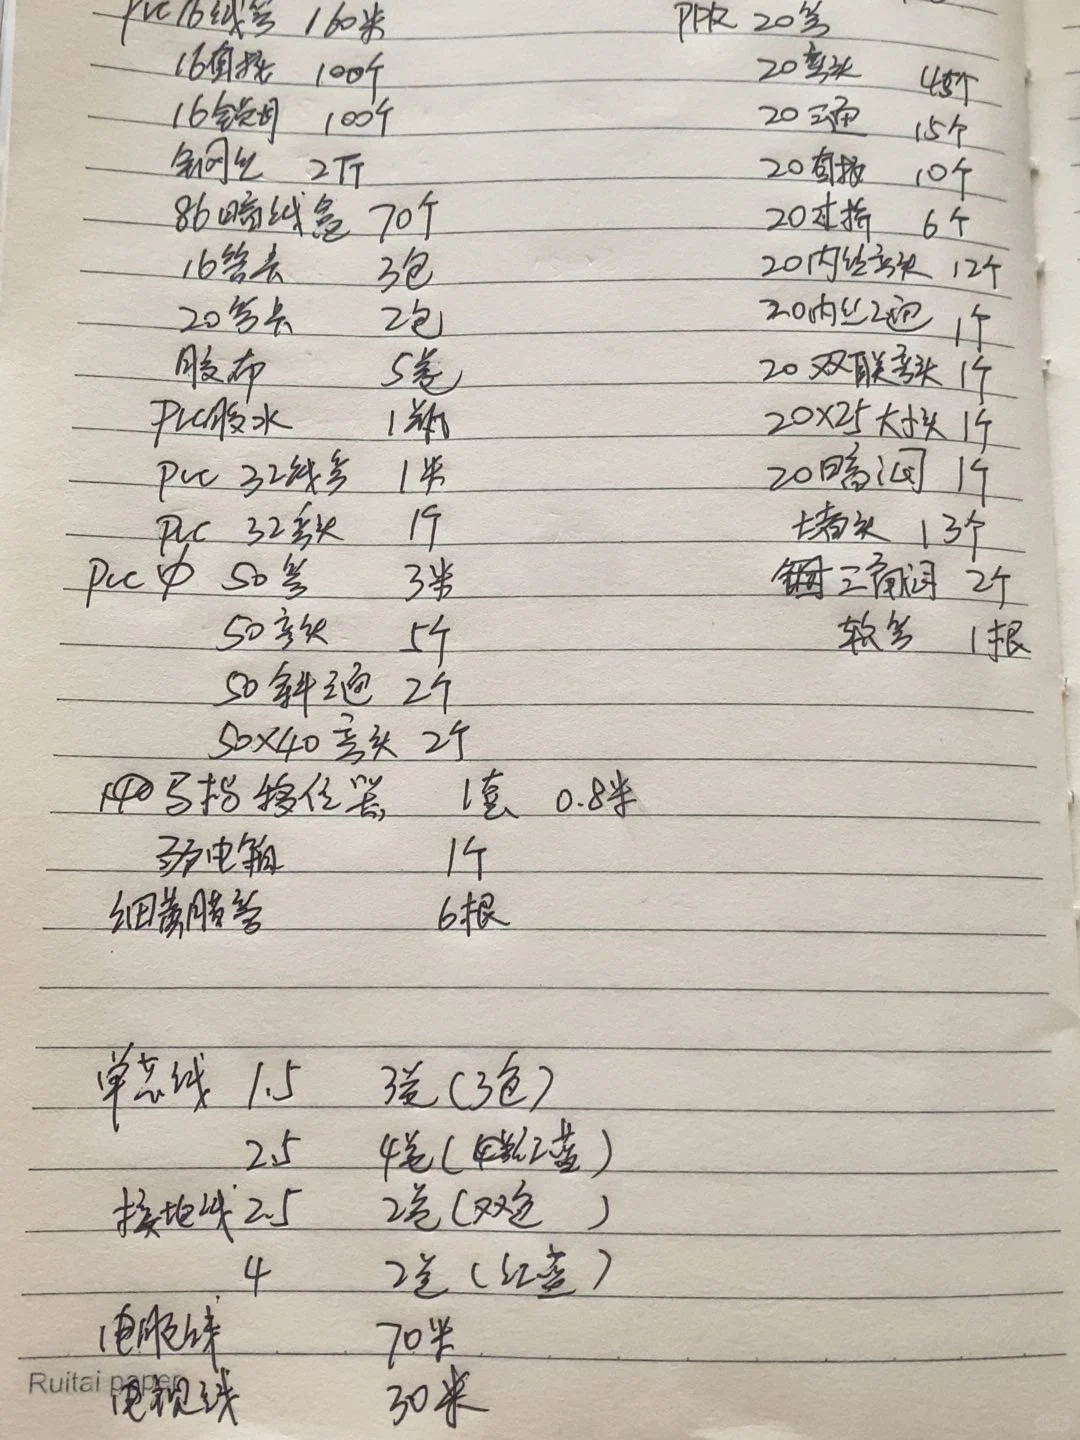 PVC 16线管 160米
16直接 100个
16锁母 100个
钢丝 2斤
86暗线盒 70个
16管卡 3包
20管卡 2包
胶布 5卷
PVC胶水 1瓶
PVC 32线管 1米
PVC 32弯头 1个
PVC φ 50管 3米
50弯头 5个
50斜三通 2个
50×40弯头 2个
马桶移位器 1套 0.8米
弱电箱 1个
细黄腊管 6根
单芯线 1.5 3卷(3色)
2.5 4卷(红蓝)
接地线 2.5 2卷(双色 )
4 2卷(红蓝)
电脑线 70米
电视线 30米
PPR 20管
20弯头 45个
20三通 15个
20直接 10个
20过桥 6个
20内丝弯头 12个
20内丝三通 1个
20双联弯头 1个
20×25大小头 1个
20暗阀 1个
堵头 13个
三角阀 2个
软管 1根
Ruitai paper